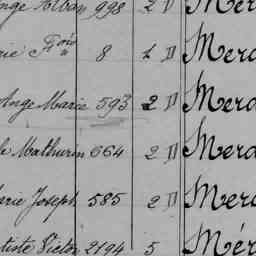 Ange Alban 998 2 D Mér
rie Fçois 8 1 D Merd
Ange Marie 593 2 D Merd
h Mathurin 664 2 D Merd
arie Joseph 585 2 D Merd
tiste Victor 2194 5 Mér